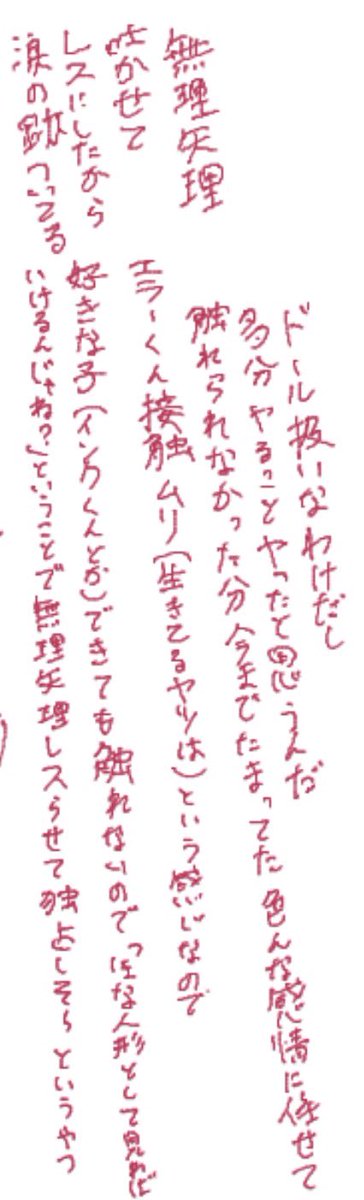 無理矢理
泣かせて
レスにしたから
涙の跡ついてる
ドール扱いなわけだし
多分ヤることヤったと思うんだ
触れられなかった分今までたまってた色んな感情に任せて
エラーくん接触ムリ(生きてるヤツは)という感じなので
好きな子(インクくんとか)できても触れないので「 な人形として見れば
いけるんじゃね?」ということで無理矢理レスらせて独占しそう というやつ